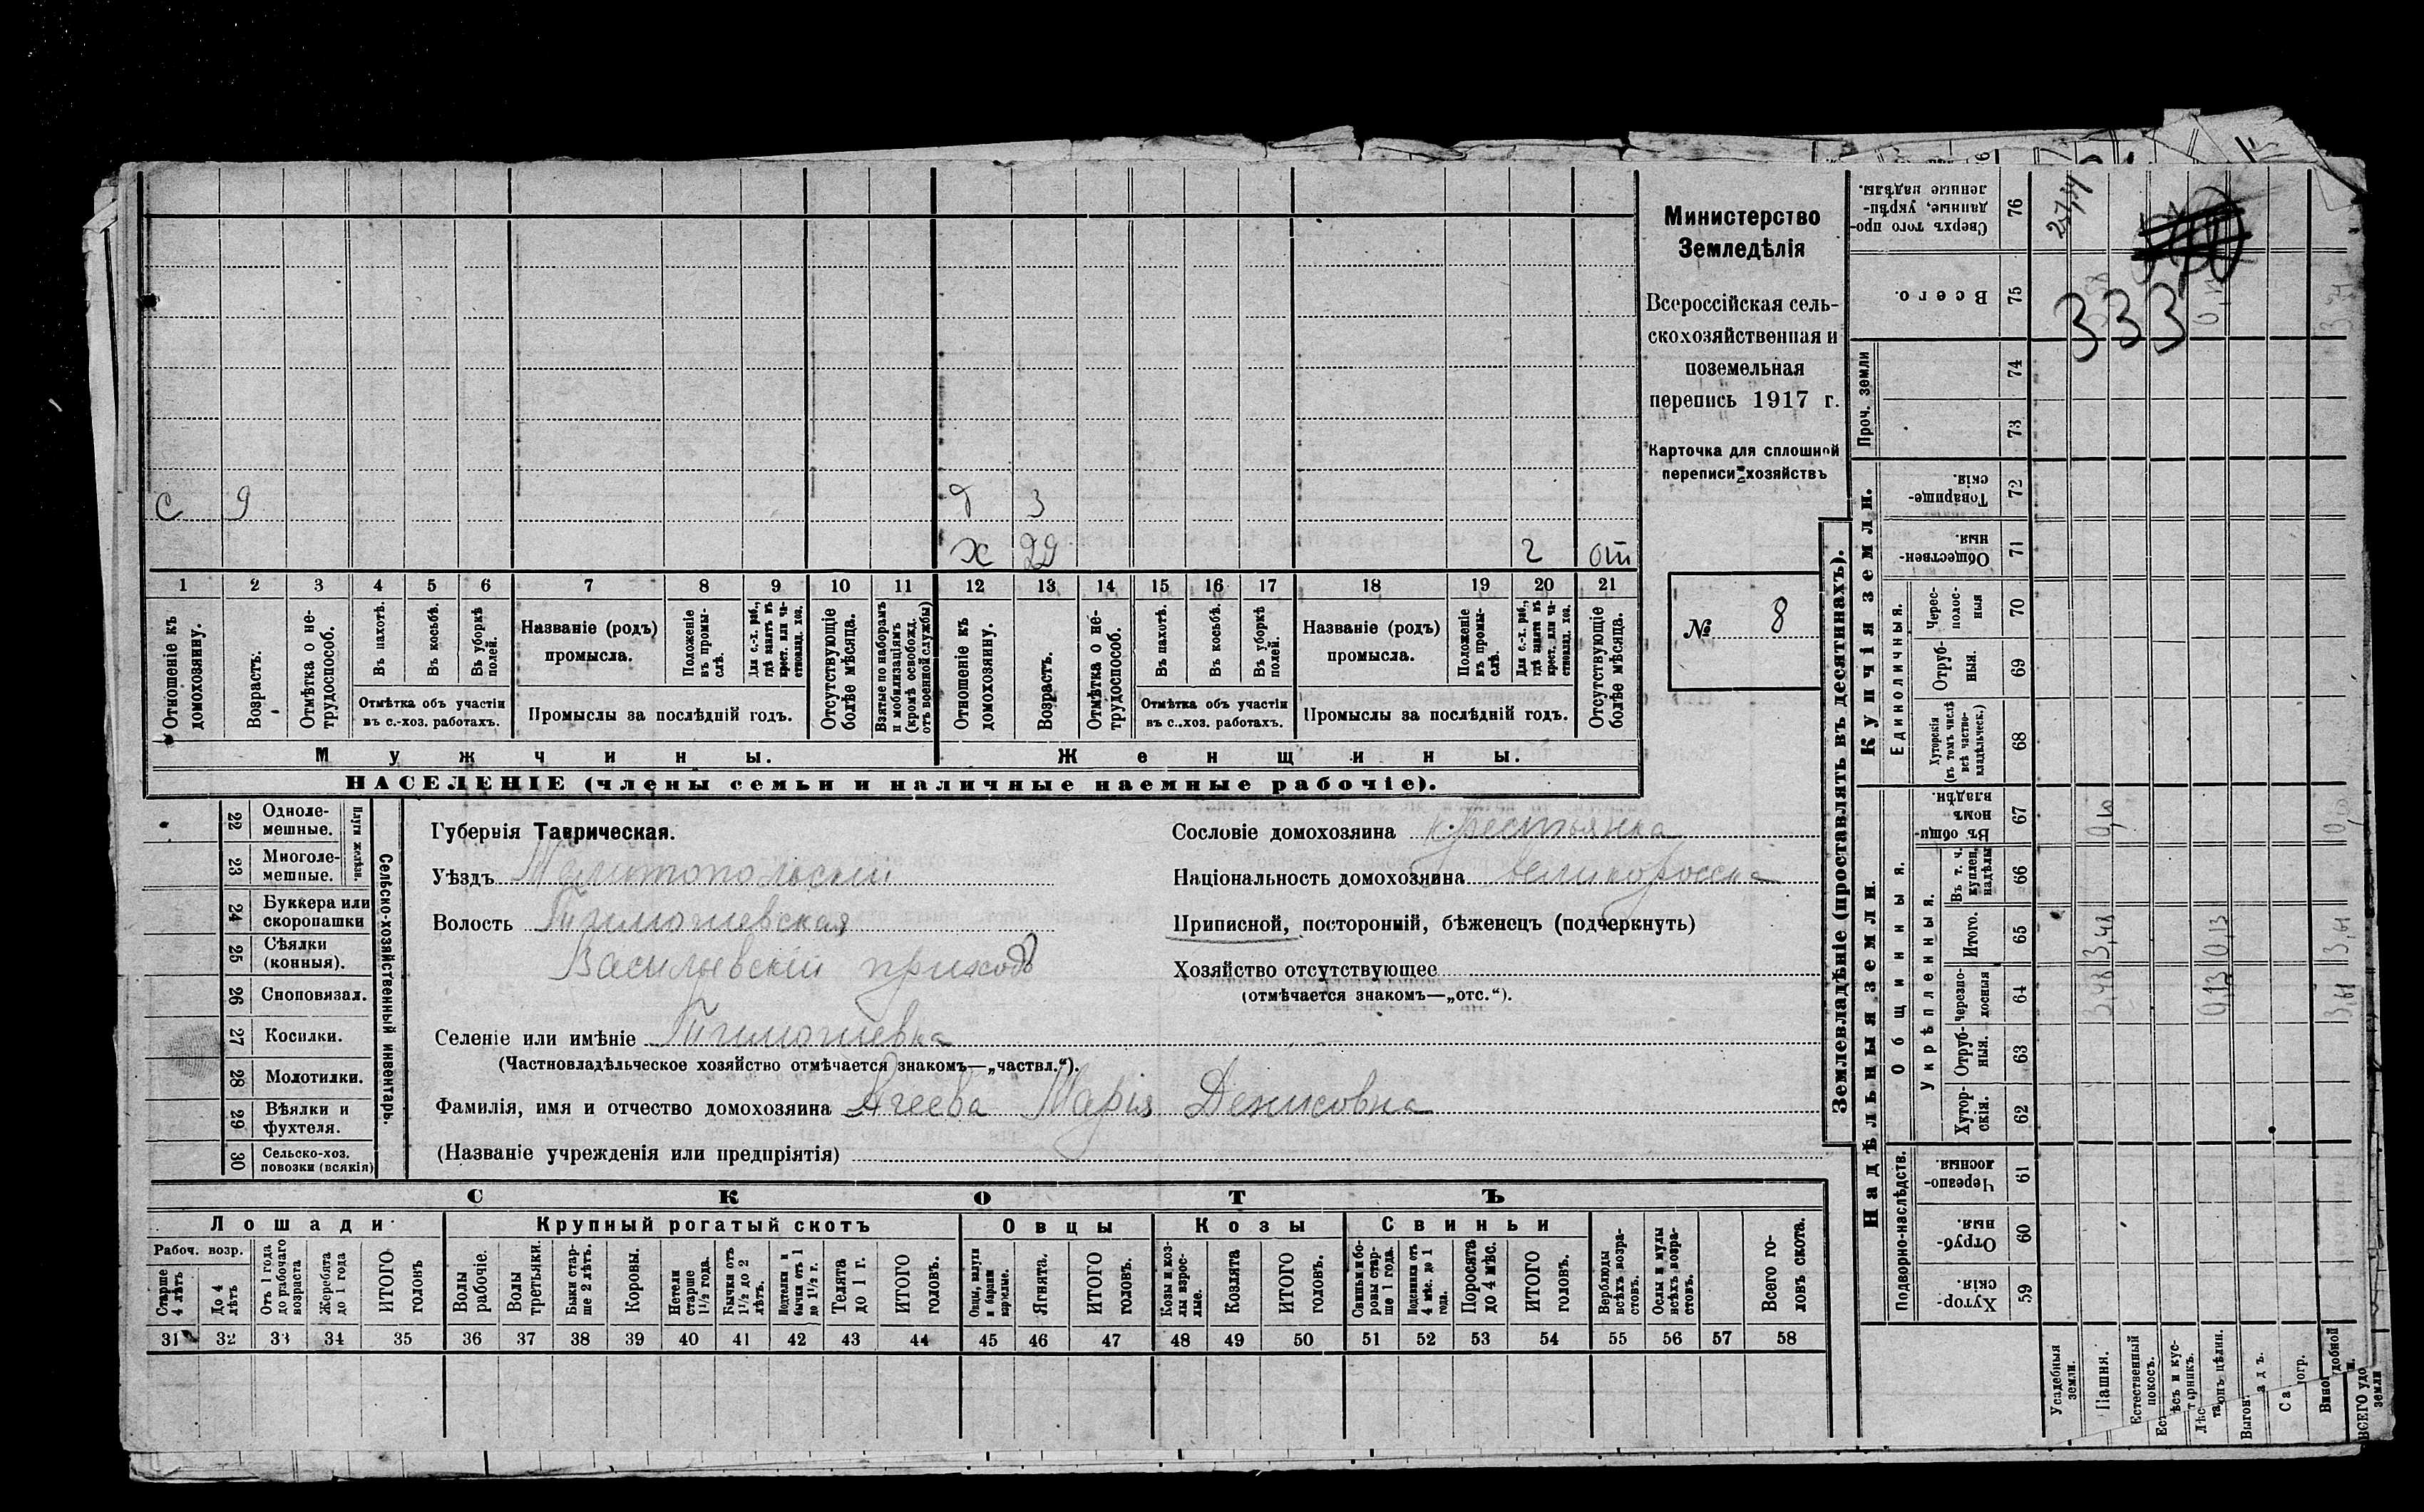 С 9 д 3
х 29 2 от
1 2 3 4 5 6 7 8 9 10 11 12 13 14 15 16 17 18 19 20 21
Отношеніе къ домохозяину.
Возрастъ.
Отмѣтка о нетрудоспособ.
Въ пахотѣ.
Въ косьбѣ.
Въ уборкѣ полей.
Отмѣтка объ участіи
въ с.-хоз. работахъ.
Названіе (родъ)
промысла.
Положеніе въ промыслѣ.
Для с.-х. раб., гдѣ занятъ въ крест. или частновлад. хоз.
Промыслы за послѣдній годъ.
Отсутствующіе болѣе мѣсяца.
Взятые по наборамъ и мобилизаціямъ (кромѣ освобожд. отъ военной службы)
Отношеніе къ домохозяину.
Возрастъ.
Отмѣтка о нетрудоспособ.
Въ пахотѣ.
Въ косьбѣ.
Въ уборкѣ полей.
Отмѣтка объ участіи
въ с.-хоз. работахъ.
Названіе (родъ)
промысла.
Положеніе въ промыслѣ.
Для с.-х. раб., гдѣ занята въ крест. или частновлад. хоз.
Промыслы за послѣдній годъ.
Отсутствующіе болѣе мѣсяца.
Мужчины.
Женщины.
НАСЕЛЕНІЕ (члены семьи и наличные наемные рабочіе).
Министерство
Земледѣлія
Всероссійская сель-
скохозяйственная и
поземельная
перепись 1917 г.
Карточка для сплошной
переписи хозяйствъ
№ 8
22 Одноле-
мешные.
23 Многоле-
мешные.
Плуги желѣзн.
24 Буккера или
скоропашки
25 Сѣялки
(конныя).
26 Сноповязал.
27 Косилки.
28 Молотилки.
29 Вѣялки и
фухтеля.
30 Сельско-хоз.
повозки (всякія)
Сельско-хозяйственный инвентарь.
Губернія Таврическая.
Уѣздъ Мелитопольскій
Волость Тимошевская
Васильевскій приходъ
Селеніе или имѣніе Тимошевка
(Частновладѣльческое хозяйство отмѣчается знакомъ—„частвл.“).
Фамилія, имя и отчество домохозяина Агеева Марія Денисовна
(Названіе учрежденія или предпріятія)
Сословіе домохозяина крестьянка
Національность домохозяина великоросска
Приписной, посторонній, бѣженецъ (подчеркнуть)
Хозяйство отсутствующее
(отмѣчается знакомъ—„отс.“).
СКОТЪ
Лошади
Крупный рогатый скотъ
Овцы
Козы
Свиньи
Рабоч. возр.
Старше 4 лѣтъ
До 4 лѣтъ
Отъ 1 года до рабочаго возраста
Жеребята до 1 года
ИТОГО головъ
Волы рабочіе.
Волы третьяки.
Быки старше 2 лѣтъ.
Коровы.
Нетели старше 1½ года.
Бычки отъ 1½ до 2 лѣтъ.
Подтелки и бычки отъ 1 до 1½ г.
Телята до 1 г.
ИТОГО головъ.
Овцы, валухи и бараны взрослые.
Ягнята.
ИТОГО головъ.
Козы и козлы взрослые.
Козлята
ИТОГО головъ.
Свиньи и боровы старше 1 года.
Подсвинки отъ 4 мѣс. до 1 года.
Поросята до 4 мѣс.
ИТОГО головъ.
Верблюды всѣхъ возрастовъ.
Ослы и мулы всѣхъ возрастовъ.
Всего головъ скота.
31 32 33 34 35 36 37 38 39 40 41 42 43 44 45 46 47 48 49 50 51 52 53 54 55 56 57 58
Землевладѣніе (проставлять въ десятинахъ).
Надѣльныя земли.
Купчія земли.
Проч. земли
Подворно-наслѣдств.
Общинныя.
Укрѣпленныя.
Единоличныя.
76 Сверхъ того проданные, укрѣпленные надѣлы.
75 Всего.
74
73
72 Товарищескія.
71 Общественныя.
70 Черес-
полос-
ныя
69 Отруб-
ныя.
68 Хуторскія
(въ томъ числѣ
всѣ частно-
владѣльческ.)
67 Въ общинномъ владѣн.
66 Въ т. ч.
куплен.
надѣлы
65 Итого.
64 Черезполосныя
63 Отруб-
ныя.
62 Хутор-
скія.
61 Черезполосныя.
60 Отруб-
ныя.
59 Хутор-
скія.
333
3,48 3,48
0,13 0,13
3,61 3,61
Усадебныя
земли.
Пашня.
Естественный
покосъ.
ВСЕГО удо
земли